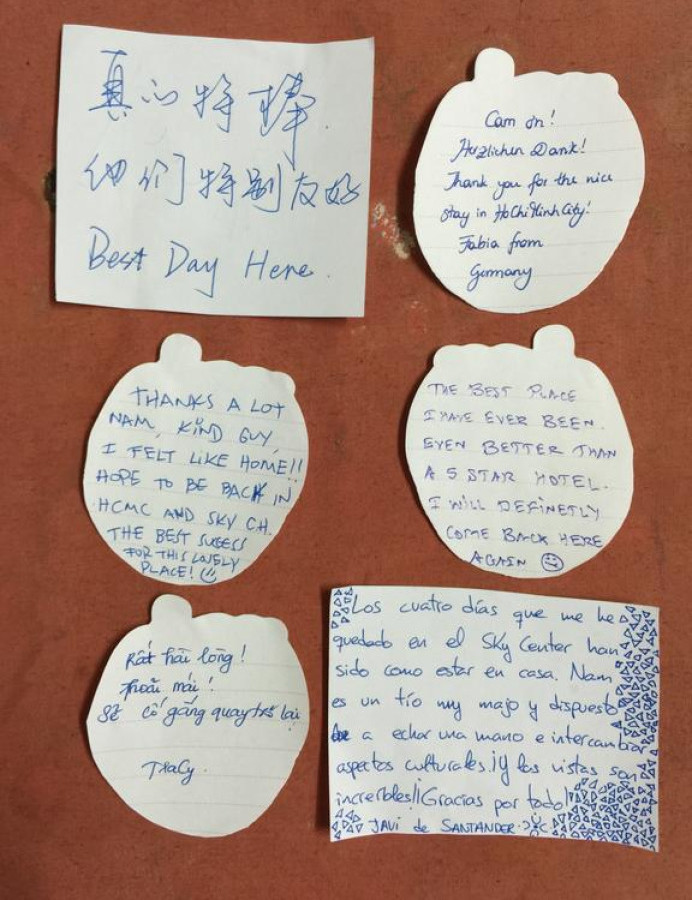 真心特棒.
他们特别友好
Best Day Here.
Cam ơn!
Herzlichen Dank!
Thank you for the nice
stay in HoChiMinhCity!
Fabia from
Germany
THANKS A LOT
NAM, KIND GUY,
I FELT LIKE HOME!!
HOPE TO BE BACK IN
HCMC AND SKY C.H.
THE BEST SUCESS
FOR THIS LOVELY
PLACE! ☺
THE BEST PLACE
I HAVE EVER BEEN.
EVEN BETTER THAN
A 5 STAR HOTEL.
I WILL DEFINETLY
COME BACK HERE
AGAIN ☺
Rất hài lòng!
Thoải mái!
Sẽ cố gắng quay trở lại
TraCy.
Los cuatro días que me he
quedado en el Sky Center han
sido como estar en casa. Nam
es un tío muy majo y dispuesto
a echar una mano e intercambiar
aspectos culturales. ¡Y las vistas son
increíbles!! Gracias por todo!
JAVI de SANTANDER.